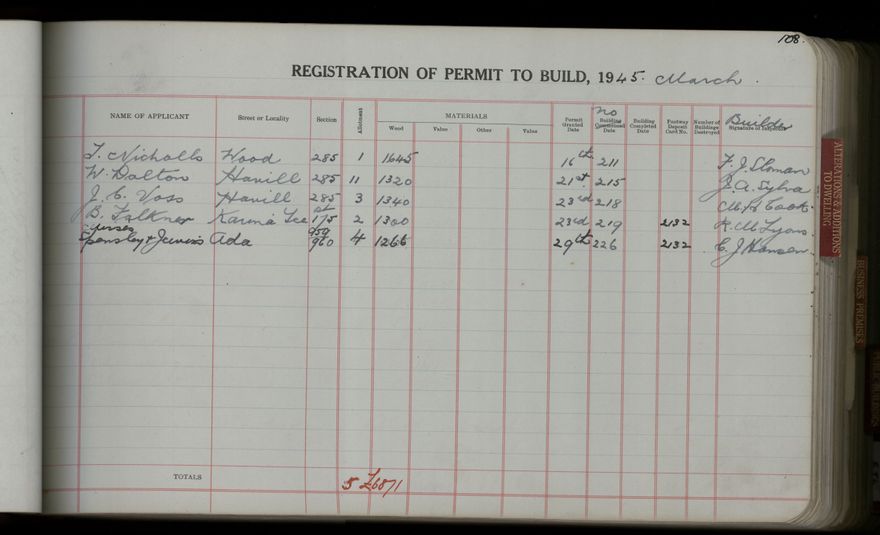 108.
REGISTRATION OF PERMIT TO BUILD, 1945. March.
NAME OF APPLICANT Street or Locality Section Allotment MATERIALS Wood Value Other Value Permit Granted Date no Building Date Building Completed Date Footway Deposit Card No. Number of Buildings Destroyed Builder Signature of Inspector
T. Nicholls Wood 285 1 1645 16th 211 F. J. Sloman
W. Dalton Havill 285 11 1320 21st. 215 J. A. Sylva
J. C. Voss Havill 285 3 1340 23rd 218 Cook.
B. Falkner Karina Tce pt 175 2 1300 23rd 219 2132 R. M Lyons
Spensley & Ada 959 960 4 1266 29th 226 2132 C. J. Hansen.
TOTALS 5 £6871
ALTERATIONS & ADDITIONS
TO DWELLING
BUSINESS PREMISES